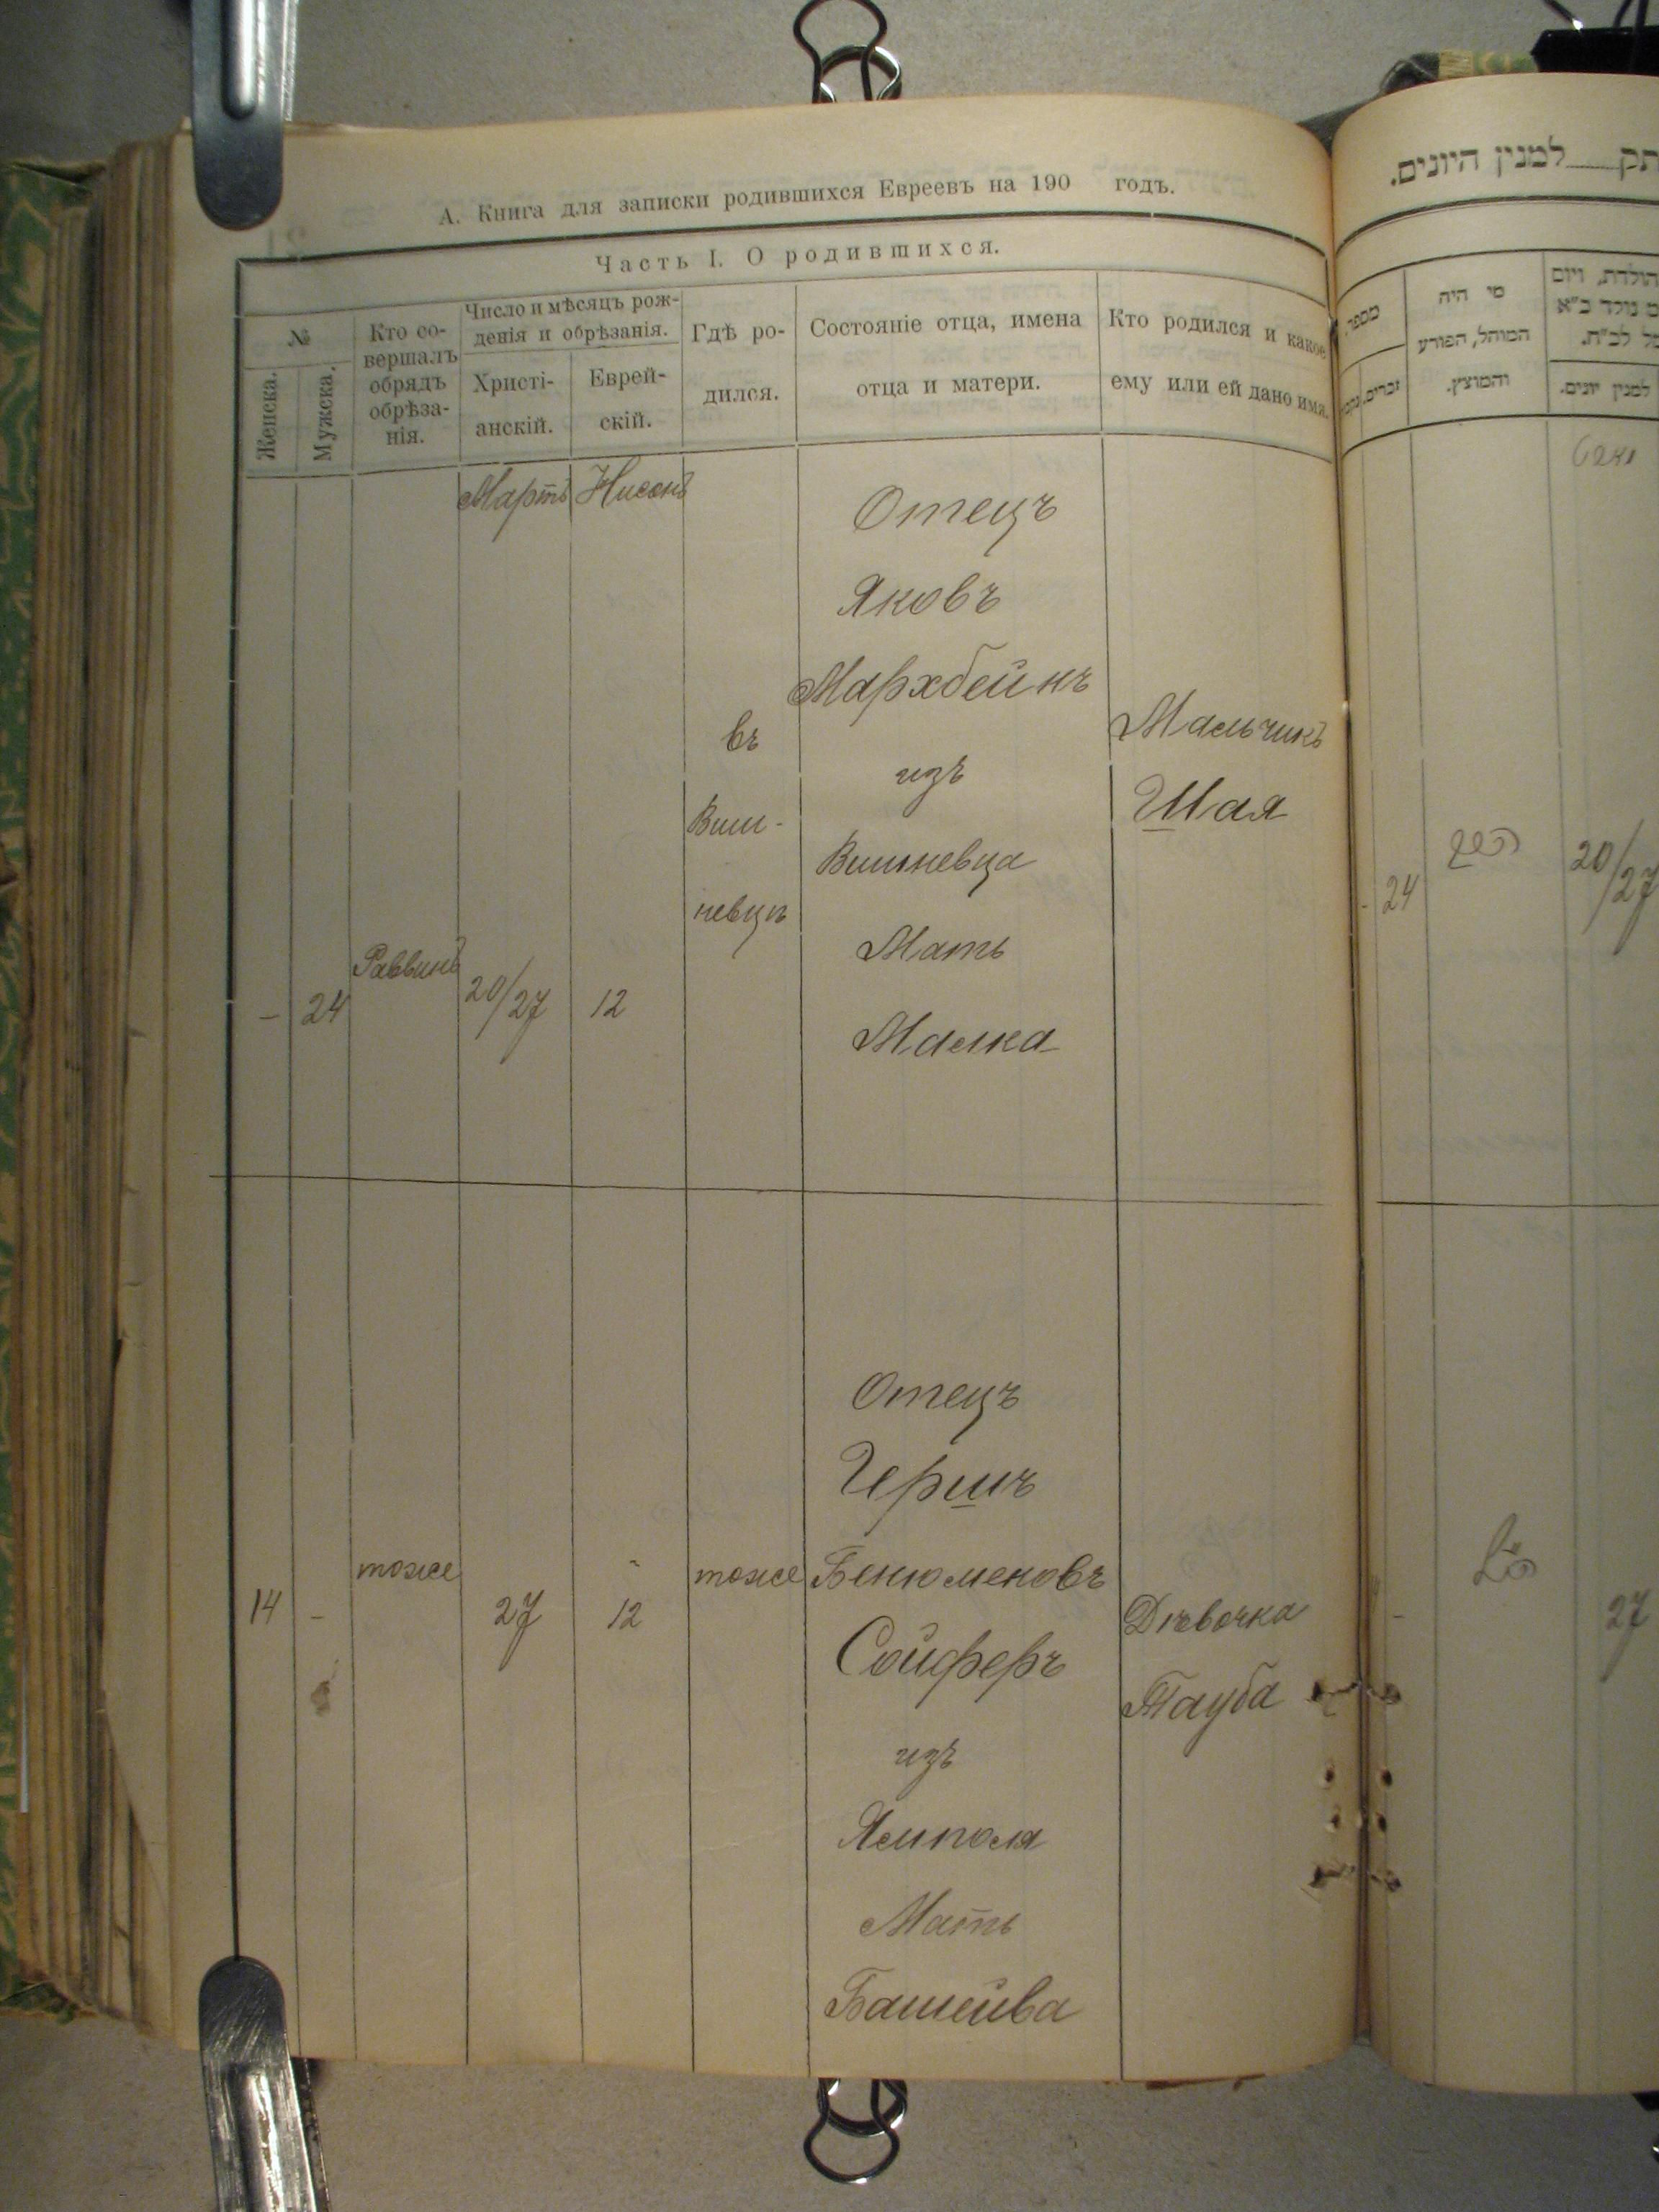 А. Книга для записки родившихся Евреевъ на 190 годъ.
Часть I. О родившихся.
№
Женска.
Мужска.
Кто со-
вершалъ
обрядъ
обрѣза-
нія.
Число и мѣсяцъ рож-
денія и обрѣзанія.
Христі-
анскій.
Еврей-
скій.
Гдѣ ро-
дился.
Состояніе отца, имена
отца и матери.
Кто родился и какое
ему или ей дано имя.
Мартъ Нисонъ
– 24 Раввинъ 20/27 12
въ
Виш-
невцѣ
Отецъ
Яковъ
Мархбейнъ
изъ
Вишневца
Мать
Малка
Мальчикъ
Шая
14 – тоже 27 12 тоже
Отецъ
Гершъ
Бенюменовъ
Сойферъ
изъ
Ямполя
Мать
Башейва
Дѣвочка
Тауба
תק למנין היונים.
מספר
זכרים.
מי היה
המוהל, הפורע
והמוצץ.
הולדת, ויום
נולד ב"א
לכ"ח.
למנין יונים.
- 24
20/27
-
27